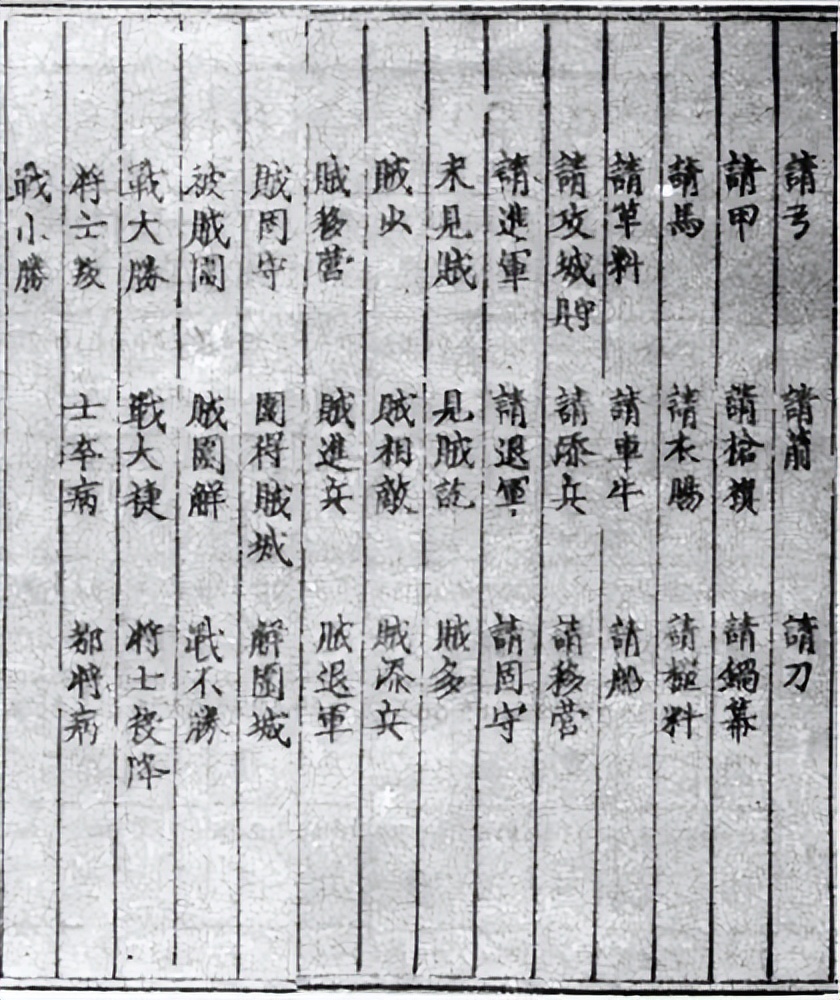 請弓　請箭　請刀
請甲　請槍旗　請鍋幕
請馬　請衣賜　請糧料
請草料　請車牛　請船
請攻城　請添兵　請移營
請進軍　請退軍　請固守
未見賊　見賊訖　賊多
賊少　賊相敵　賊添兵
賊移營　賊進兵　賊退軍
賊固守　圍得賊城　解圍城
被賊圍　賊圍解　戰不勝
戰大勝　戰大捷　將士投降
將士叛　士卒病　都將病
戰小勝